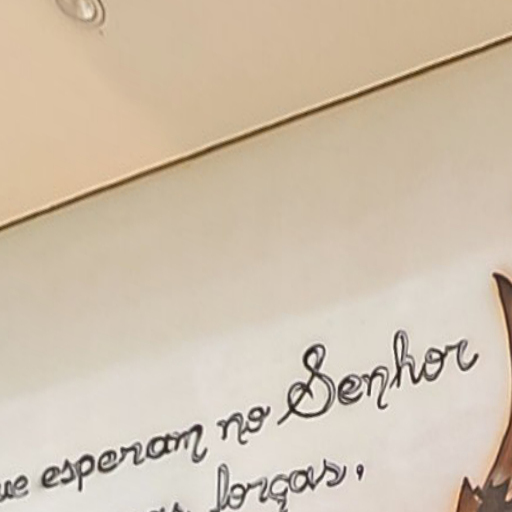 ue esperam no Senhor
forças,